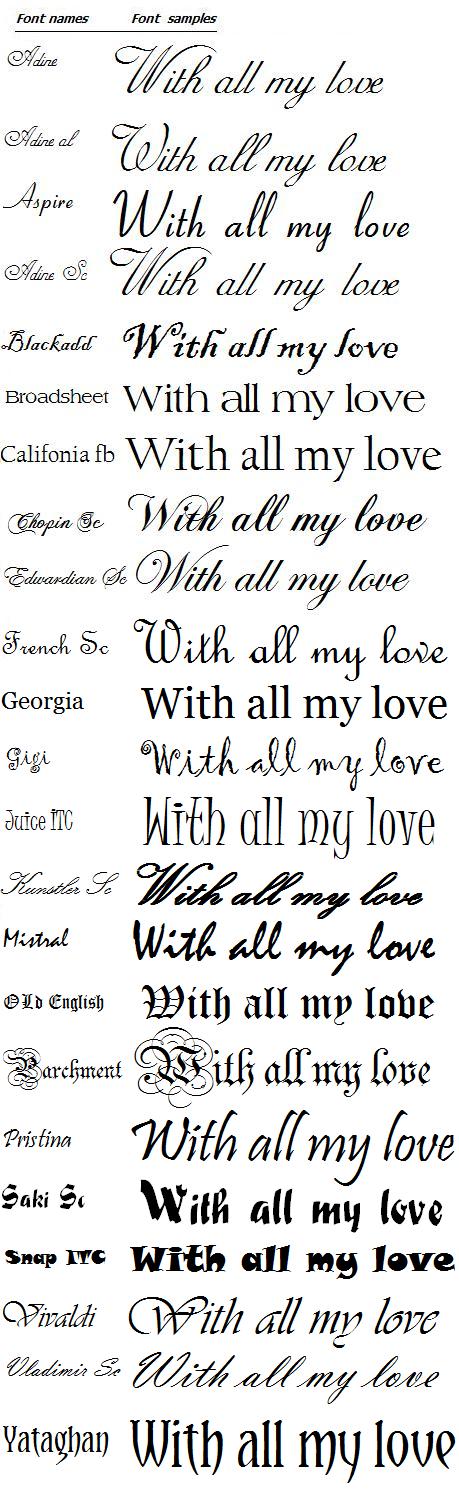 Font names Font samples
Adine With all my love
Adine al With all my love
Aspire With all my love
Adine Sc With all my love
Blackadd With all my love
Broadsheet With all my love
Califonia fb With all my love
Chopin Sc With all my love
Edwardian Sc With all my love
French Sc With all my love
Georgia With all my love
Gigi With all my love
Juice ITC With all my love
Kunstler Sc With all my love
Mistral With all my love
OLd English With all my love
Parchment With all my love
Pristina With all my love
Saki Sc With all my love
Snap ITC With all my love
Vivaldi With all my love
Vladimir Sc With all my love
Yataghan With all my love